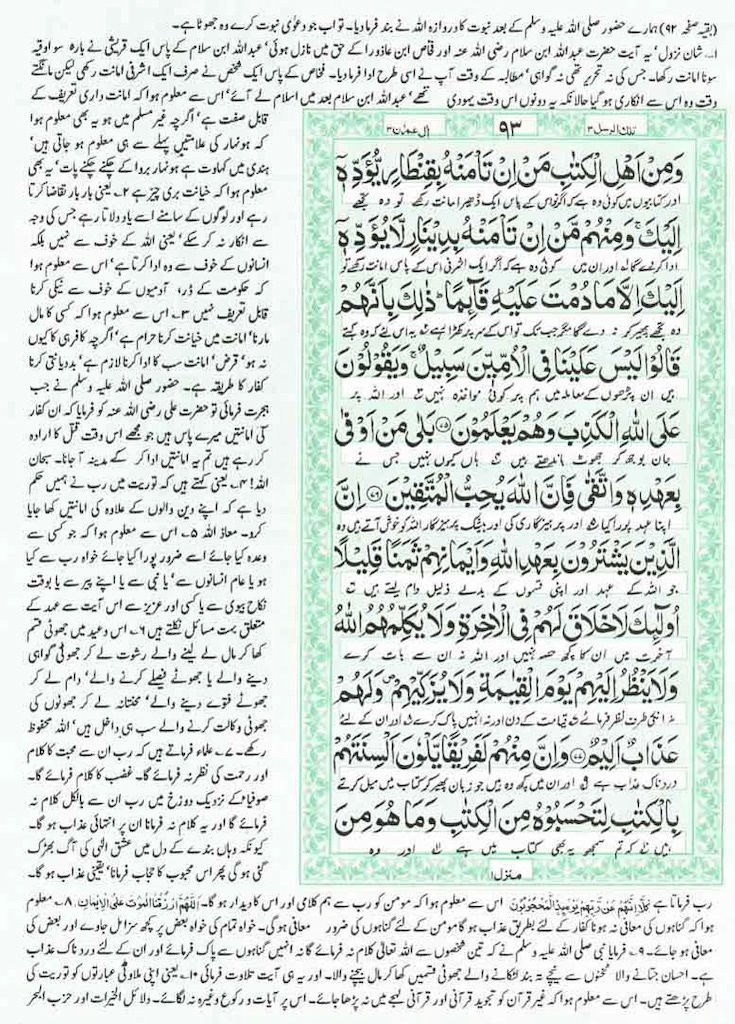 (بقیہ صفحہ ۹۲) ہمارے حضور صلی اللہ علیہ وسلم کے بعد نبوت کا دروازہ اللہ نے بند فرما دیا۔ تو اب جو دعوٰی نبوت کرے وہ جھوٹا ہے۔
۱۔ شان نزول' یہ آیت حضرت عبداللہ ابن سلام رضی اللہ عنہ اور فخاص ابن عاذورا کے حق میں نازل ہوئی' عبداللہ ابن سلام کے پاس ایک قریشی نے بارہ سو اوقیہ
سونا امانت رکھا۔ جس کی نہ تحریر تھی نہ گواہی' مطالبہ کے وقت آپ نے اسی طرح ادا فرما دیا۔ فخاص کے پاس ایک شخص نے صرف ایک اشرفی امانت رکھی لیکن مانگتے
وقت وہ اس سے انکاری ہو گیا حالانکہ یہ دونوں اس وقت یہودی تھے' عبداللہ ابن سلام بعد میں اسلام لے آئے' اس سے معلوم ہوا کہ امانت داری تعریف کے
تلك الرسل ۳
۹۳
اٰل عمران ۳
وَمِنْ اَهْلِ الْكِتٰبِ مَنْ اِنْ تَاْمَنْهُ بِقِنْطَارٍ يُّؤَدِّهٖٓ
اور کتابیوں میں کوئی وہ ہے کہ اگر تو اس کے پاس ایک ڈھیر امانت رکھے تو وہ تجھے
اِلَيْكَ ۚ وَمِنْهُمْ مَّنْ اِنْ تَاْمَنْهُ بِدِيْنَارٍ لَّا يُؤَدِّهٖٓ
ادا کر دے گا اور ان میں کوئی وہ ہے کہ اگر ایک اشرفی اس کے پاس امانت رکھے تو
اِلَيْكَ اِلَّا مَا دُمْتَ عَلَيْهِ قَآئِمًا ؕ ذٰلِكَ بِاَنَّهُمْ
وہ تجھے پھیر کر نہ دے گا مگر جب تک تو اس کے سر پر کھڑا رہے یہ اس لئے کہ وہ کہتے
قَالُوْا لَيْسَ عَلَيْنَا فِي الْاُمِّيّٖنَ سَبِيْلٌ ۚ وَيَقُوْلُوْنَ
ہیں ان پڑھوں کے معاملہ میں ہم پر کوئی مواخذہ نہیں اور اللہ پر
عَلَى اللّٰهِ الْكَذِبَ وَهُمْ يَعْلَمُوْنَ ۷۵ بَلٰى مَنْ اَوْفٰى
جان بوجھ کر جھوٹ باندھتے ہیں ہاں کیوں نہیں جس نے
بِعَهْدِهٖ وَاتَّقٰى فَاِنَّ اللّٰهَ يُحِبُّ الْمُتَّقِيْنَ ۷۶ اِنَّ
اپنا عہد پورا کیا اور پرہیزگاری کی اور بیشک پرہیزگار اللہ کو خوش آتے ہیں وہ
الَّذِيْنَ يَشْتَرُوْنَ بِعَهْدِ اللّٰهِ وَاَيْمَانِهِمْ ثَمَنًا قَلِيْلًا
جو اللہ کے عہد اور اپنی قسموں کے بدلے ذلیل دام لیتے ہیں
اُولٰٓئِكَ لَا خَلَاقَ لَهُمْ فِي الْاٰخِرَةِ وَلَا يُكَلِّمُهُمُ اللّٰهُ
آخرت میں ان کا کچھ حصہ نہیں اور اللہ نہ ان سے بات کرے
وَلَا يَنْظُرُ اِلَيْهِمْ يَوْمَ الْقِيٰمَةِ وَلَا يُزَكِّيْهِمْ ۪ وَلَهُمْ
نہ انکی طرف نظر فرمائے قیامت کے دن اور نہ انہیں پاک کرے اور ان کے لئے
عَذَابٌ اَلِيْمٌ ۷۷ وَاِنَّ مِنْهُمْ لَفَرِيْقًا يَّلْوٗنَ اَلْسِنَتَهُمْ
دردناک عذاب ہے اور ان میں کچھ وہ ہیں جو زبان پھیر کر کتاب میں میل کرتے
بِالْكِتٰبِ لِتَحْسَبُوْهُ مِنَ الْكِتٰبِ وَمَا هُوَ مِنَ
ہیں کہ تم سمجھو یہ بھی کتاب میں ہے اور وہ
منزل۱
قابل صفت ہے' اگرچہ غیر مسلم میں ہو یہ بھی معلوم ہوا
کہ ہونہار کی علامتیں پہلے سے ہی معلوم ہو جاتی ہیں'
ہندی میں کہاوت ہے ہونہار بروا کے چکنے چکنے پات' یہ بھی
معلوم ہوا کہ خیانت بری چیز ہے ۲۔ یعنی بار بار تقاضا کرتا
رہے اور لوگوں کے سامنے اسے یاد دلاتا رہے جس کی وجہ
سے انکار نہ کر سکے' یعنی اللہ کے خوف سے نہیں بلکہ
انسانوں کے خوف سے وہ ادا کرتا ہے' اس سے معلوم ہوا
کہ حکومت کے ڈر، آدمیوں کے خوف سے نیکی کرنا
قابل تعریف نہیں ۳۔ اس سے معلوم ہوا کہ کسی کا مال
مارنا' امانت میں خیانت کرنا حرام ہے' اگرچہ کافر ہی کا کیوں
نہ ہو' قرض' امانت سب کا ادا کرنا لازم ہے' بددیانتی کرنا
کفار کا طریقہ ہے۔ حضور صلی اللہ علیہ وسلم نے جب
ہجرت فرمائی تو حضرت علی رضی اللہ عنہ کو فرمایا کہ ان کفار
کی امانتیں میرے پاس ہیں جو مجھے اس وقت قتل کا ارادہ
کر رہے ہیں تم یہ امانتیں ادا کر کے مدینہ آ جانا۔ سبحان
اللہ! ۴۔ یعنی کہتے ہیں کہ توریت میں رب نے ہمیں حکم
دیا ہے کہ اپنے دین والوں کے علاوہ کی امانتیں کھا جایا
کرو۔ معاذ اللہ ۵۔ اس سے معلوم ہوا کہ جو کسی سے
وعدہ کیا جائے اسے ضرور پورا کیا جائے خواہ رب سے کیا
ہو یا عام انسانوں سے' یا نبی سے یا اپنے پیر سے یا بوقت
نکاح بیوی سے یا کسی اور عزیز سے اس آیت سے عہد کے
متعلق بہت مسائل نکلتے ہیں ۶۔ اس وعید میں جھوٹی قسم
کھا کر مال لے لینے والے رشوت لے کر جھوٹی گواہی
دینے والے یا جھوٹے فیصلے کرنے والے' دام لے کر
جھوٹے فتوے دینے والے' محنتانہ لے کر جھوٹوں کی
جھوٹی وکالت کرنے والے سب ہی داخل ہیں' اللہ محفوظ
رکھے۔ ۷۔ علماء فرماتے ہیں کہ رب ان سے محبت کا کلام
اور رحمت کی نظر نہ فرمائے گا۔ غضب کا کلام فرمائے گا۔
صوفیاء کے نزدیک دوزخ میں رب ان سے بالکل کلام نہ
فرمائے گا اور یہ کلام نہ فرمانا ان پر انتہائی عذاب ہو گا۔
کیونکہ وہاں بندے کے دل میں عشق الٰہی کی آگ بھڑک
گئی ہو گی پھر اس محبوب کا حجاب فرمانا' یقینی عذاب ہو گا۔
رب فرماتا ہے كَلَّا اِنَّهُمْ عَنْ رَّبِّهِمْ يَوْمَئِذٍ لَّمَحْجُوْبُوْنَ اس سے معلوم ہوا کہ مومن کو رب سے ہم کلامی اور اس کا دیدار ہو گا۔ اَللّٰهُمَّ ارْزُقْنَا الْمَوْتَ عَلَى الْاِيْمَانِ ۸۔ معلوم
ہوا کہ گناہوں کی معافی نہ ہونا کفار کے لئے بطریق عذاب ہو گا مومن کے لئے گناہوں کی ضرور معافی ہو گی۔ خواہ تمام کی خواہ بعض پر کچھ سزا مل جاوے اور بعض کی
معافی ہو جائے۔ ۹۔ فرمایا نبی صلی اللہ علیہ وسلم نے کہ تین شخصوں سے اللہ تعالٰی کلام نہ فرمائے گا نہ انہیں گناہوں سے پاک فرمائے اور ان کے لئے دردناک عذاب
ہے۔ احسان جتانے والا ٹخنوں سے نیچے تہ بند لٹکانے والے جھوٹی قسمیں کھا کر مال بیچنے والا۔ اور یہ ہی آیت تلاوت فرمائی ۱۰۔ یعنی اپنی ملاوٹی عبارتوں کو توریت کی
طرح پڑھتے ہیں۔ اس سے معلوم ہوا کہ غیر قرآن کو تجوید قرآنی اور قرآنی لہجے میں نہ پڑھا جائے۔ اس پر آیات و رکوع وغیرہ نہ لگائے۔ دلائل الخیرات اور حزب البحر